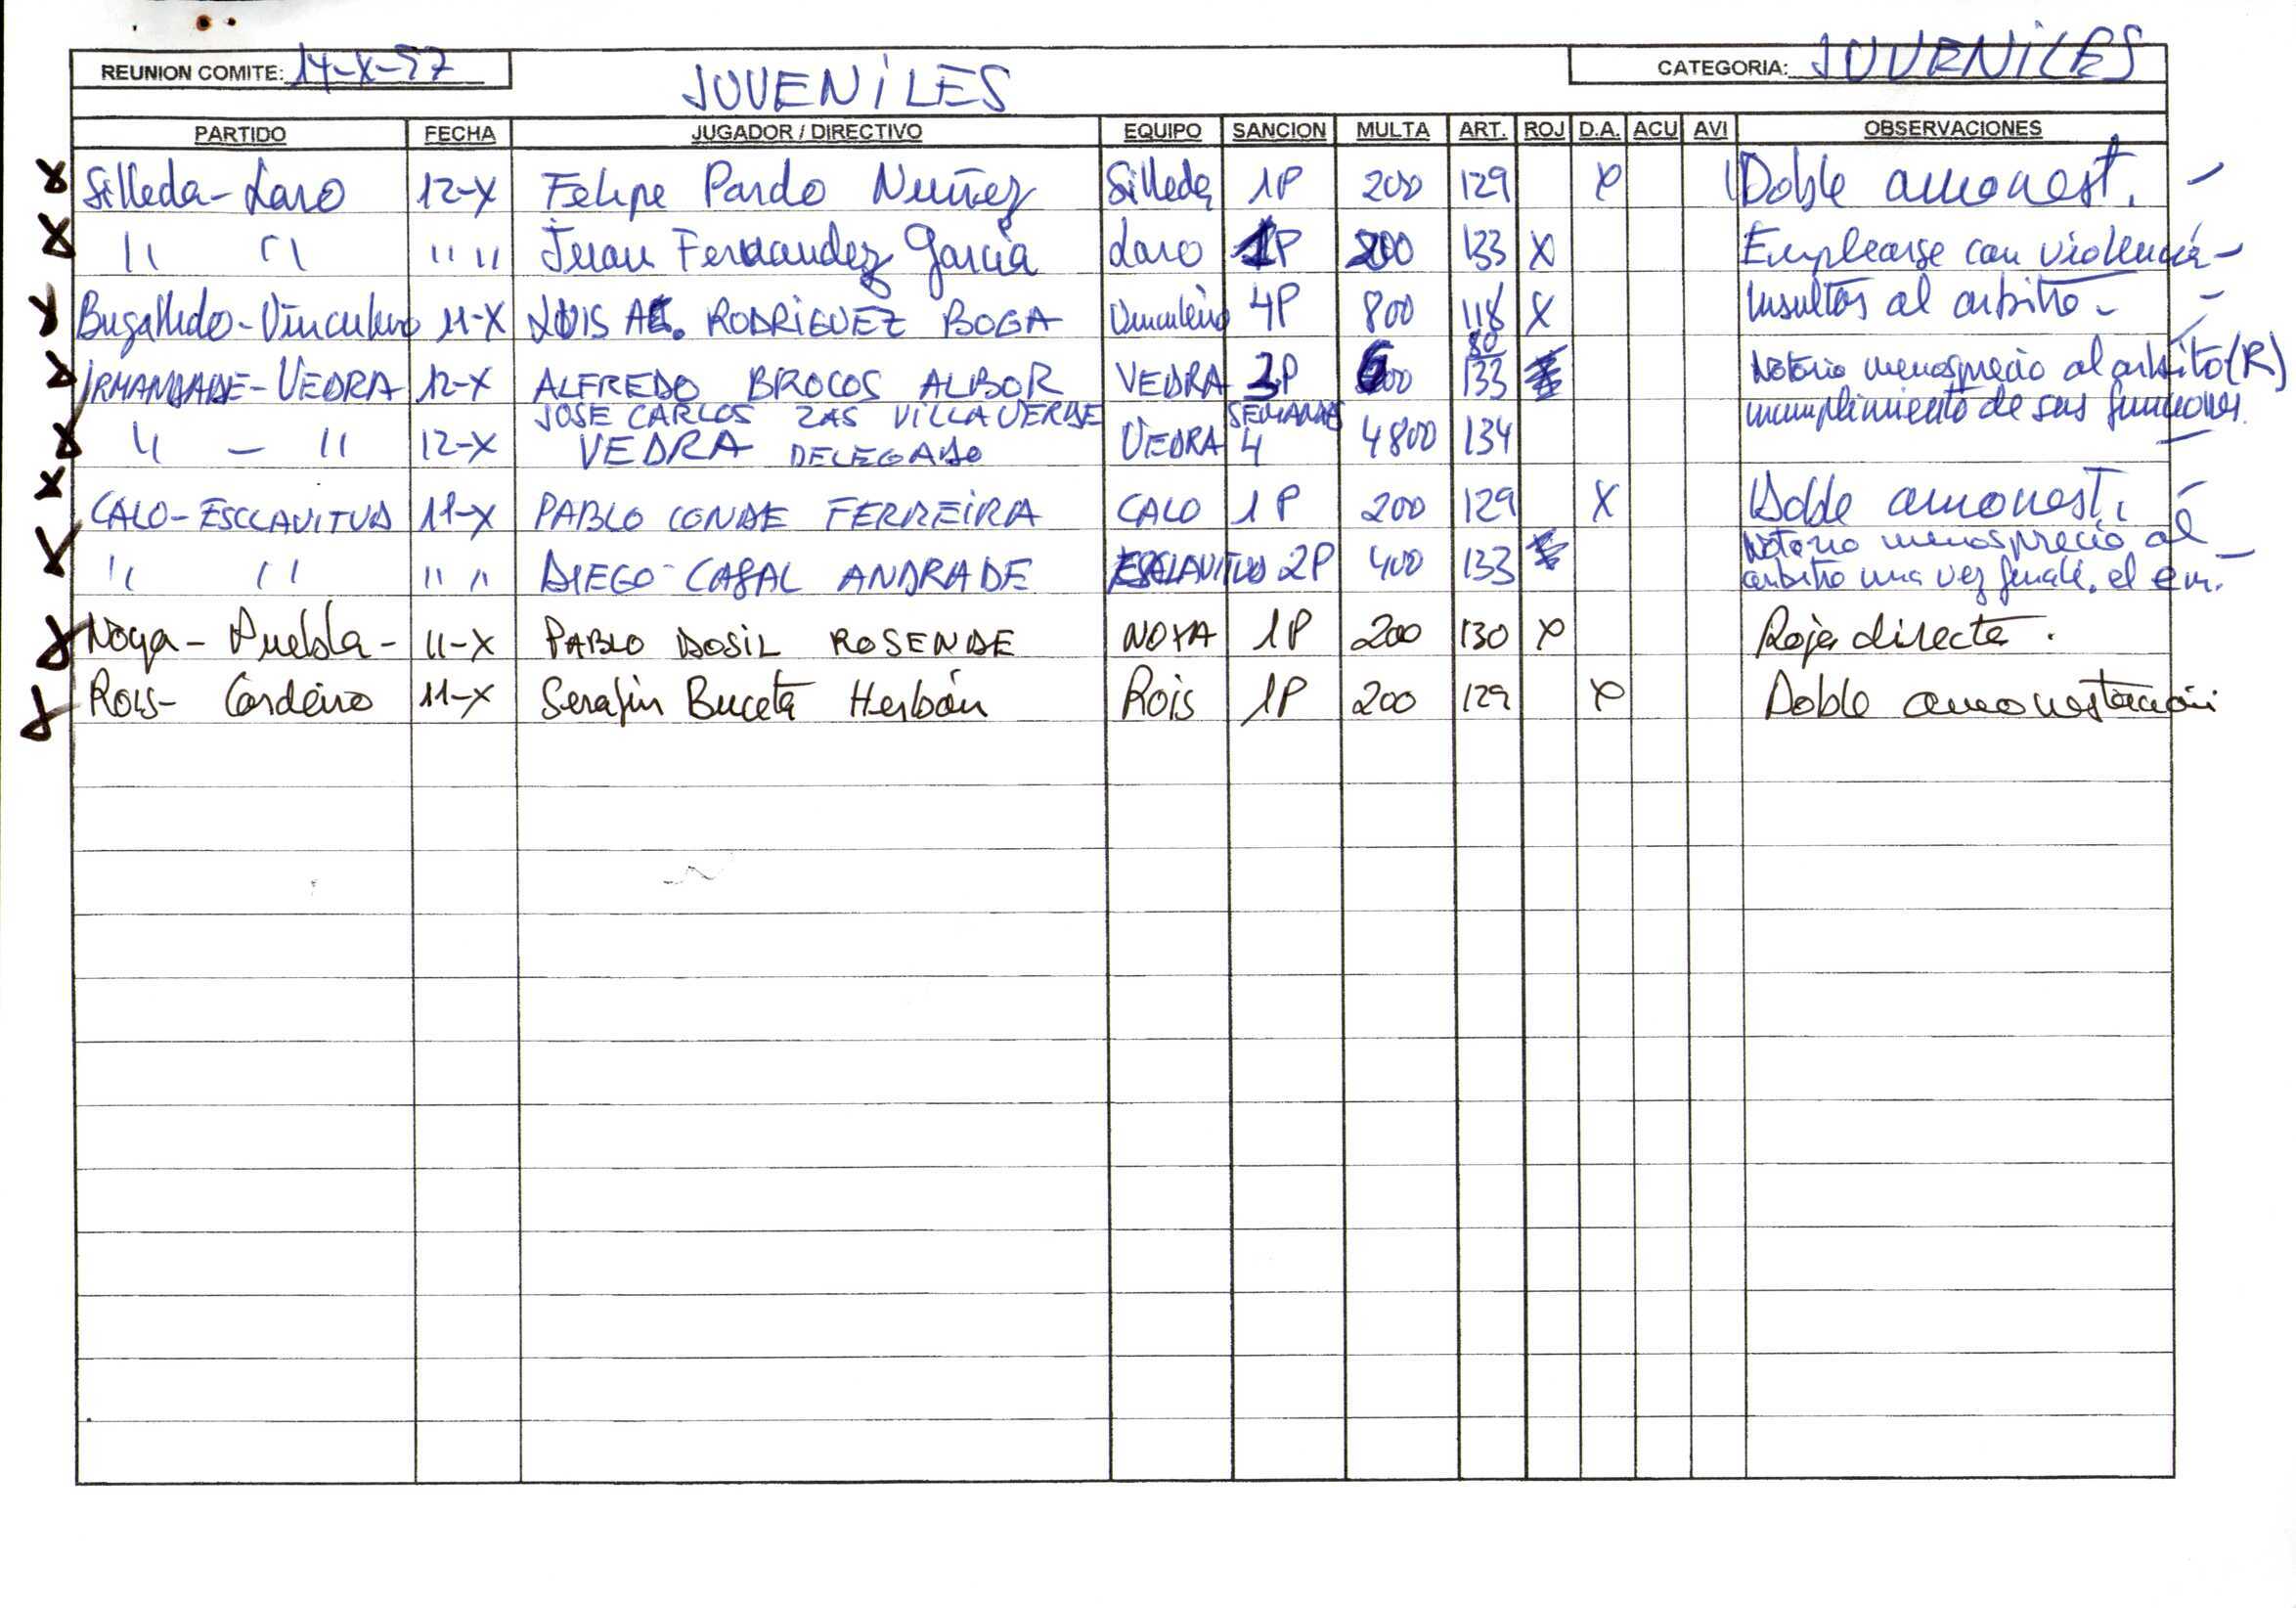 REUNION COMITE: 14-X-97
JUVENILES
CATEGORIA: JUVENILES
PARTIDO FECHA JUGADOR / DIRECTIVO EQUIPO SANCION MULTA ART. ROJ D.A. ACU AVI OBSERVACIONES
Silleda - Laro 12-X Felipe Pardo Nuñez Silleda 1P 200 129 X Doble amonest.
" " " " Juan Fernandez Garcia Laro 1P 200 133 X Emplearse con violencia
Bugallido - Vinculeiro 11-X LUIS RODRIGUEZ BOGA Vinculeiro 4P 800 118 X Insultos al arbitro
IRMANDADE - VEDRA 12-X ALFREDO BROCOS ALBOR VEDRA 3P 600 80 133 Notorio menosprecio al arbitro (R)
" - " 12-X JOSE CARLOS ZAS VILLAVERDE VEDRA DELEGADO VEDRA SEMANAS 4 4800 134 incumplimiento de sus funciones.
CALO - ESCLAVITUD 11-X PABLO CONDE FERREIRA CALO 1P 200 129 X Doble amonest.
" " " " DIEGO CASAL ANDRADE ESCLAVITUD 2P 400 133 Notorio menosprecio al
arbitro una vez finali. el en.
Noya - Puebla - 11-X PABLO DOSIL ROSENDE NOYA 1P 200 130 X Roja directa.
Rois - Cordeiro 11-X Serafin Buceta Herbón Rois 1P 200 129 X Doble amonestación